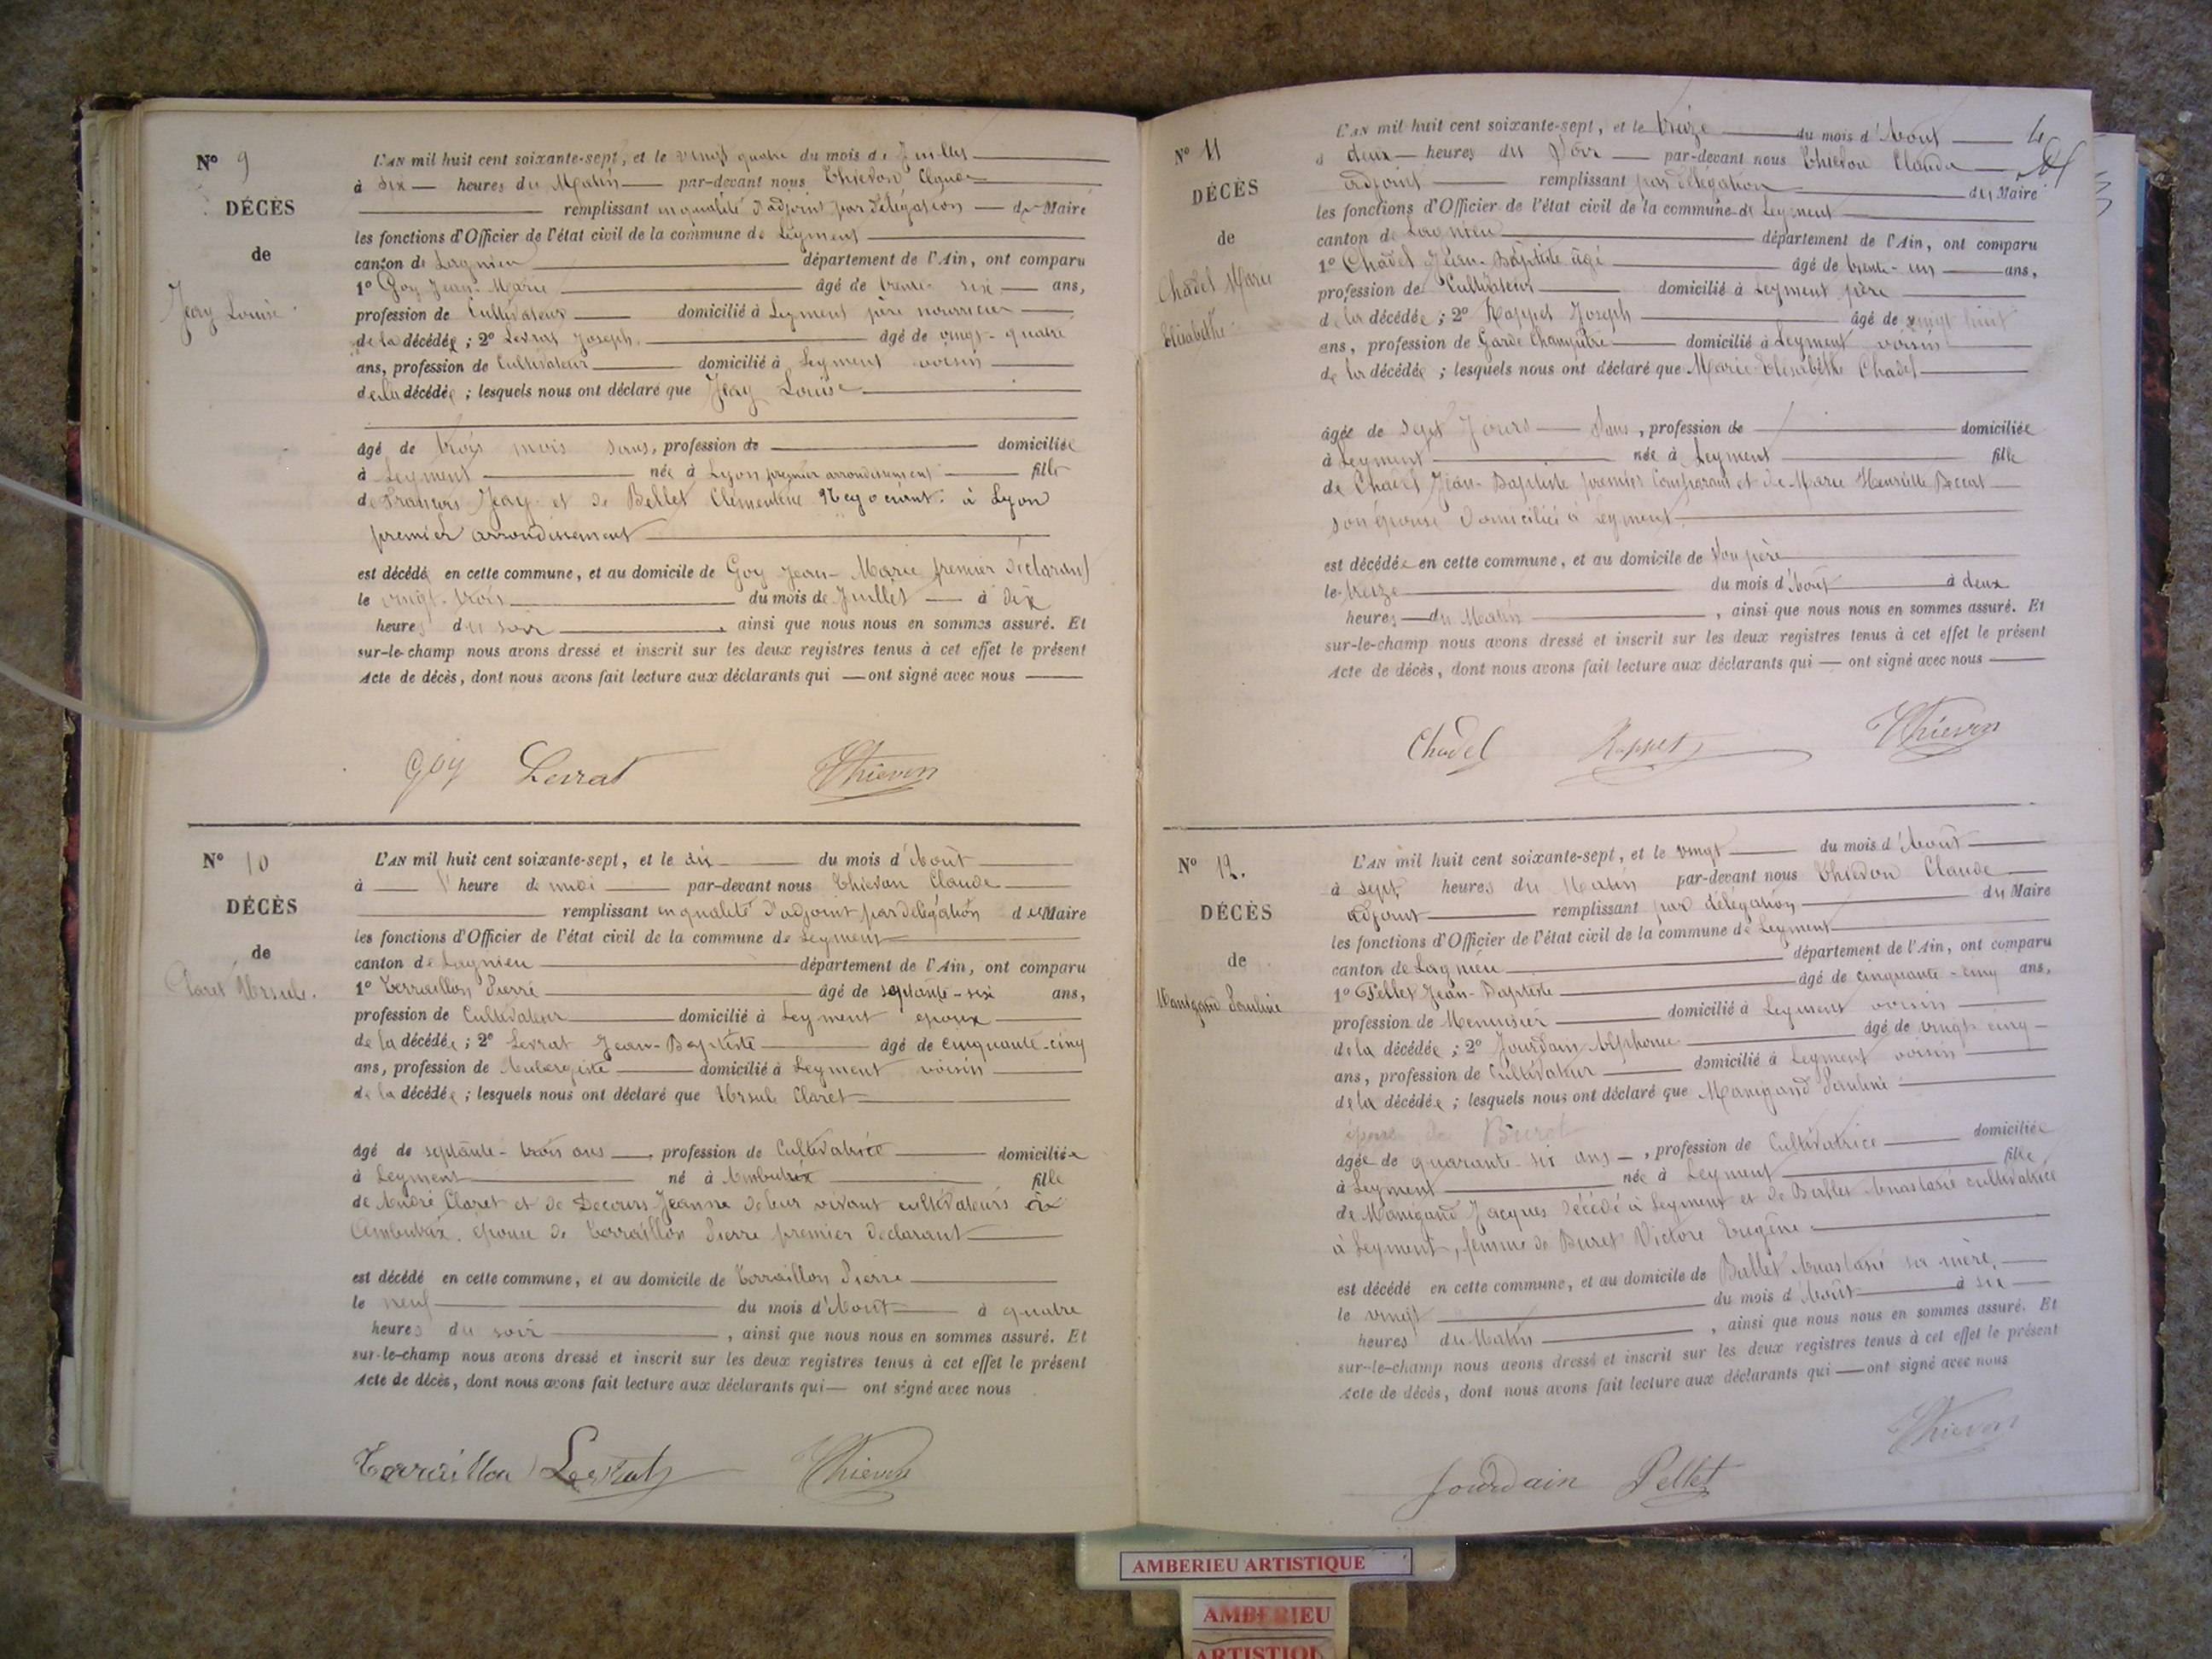 N° 9
DÉCÈS
de
Jeay Louise
L'AN mil huit cent soixante-sept, et le vingt quatre du mois de Juillet
à six heures du Matin par-devant nous Thievon Claude
remplissant en qualité d'adjoint par délégation du Maire
les fonctions d'Officier de l'état civil de la commune de Leyment
canton de Lagnieu département de l'Ain, ont comparu
1° Goy Jean-Marie âgé de trente-six ans,
profession de Cultivateur domicilié à Leyment père nourricier
de la décédée ; 2° Levrat Joseph âgé de vingt-quatre
ans, profession de Cultivateur domicilié à Leyment voisin
de la décédée ; lesquels nous ont déclaré que Jeay Louise
âgé de trois mois sans, profession de domiciliée
à Leyment née à Lyon premier arrondissement fille
de François Jeay et de Bellet Clémentine Négociant à Lyon
premier arrondissement
est décédé en cette commune, et au domicile de Goy Jean-Marie premier déclarant
le vingt-trois du mois de Juillet à dix
heures du soir , ainsi que nous nous en sommes assuré. Et
sur-le-champ nous avons dressé et inscrit sur les deux registres tenus à cet effet le présent
Acte de décès, dont nous avons fait lecture aux déclarants qui — ont signé avec nous
Goy Levrat Thievon
N° 10
DÉCÈS
de
Claret Ursule.
L'AN mil huit cent soixante-sept, et le dix du mois d'Août
à l'heure de midi par-devant nous Thievon Claude
remplissant en qualité d'adjoint par délégation du Maire
les fonctions d'Officier de l'état civil de la commune de Leyment
canton de Lagnieu département de l'Ain, ont comparu
1° Terraillon Pierre âgé de septante-six ans,
profession de Cultivateur domicilié à Leyment époux
de la décédée ; 2° Levrat Jean-Baptiste âgé de cinquante-cinq
ans, profession de Aubergiste domicilié à Leyment voisin
de la décédée ; lesquels nous ont déclaré que Ursule Claret
âgé de septante-trois ans, profession de Cultivatrice domiciliée
à Leyment né à Ambutrix fille
de André Claret et de Decours Jeanne de leur vivant cultivateurs à
Ambutrix, épouse de Terraillon Pierre premier déclarant
est décédé en cette commune, et au domicile de Terraillon Pierre
le neuf du mois d'Août à quatre
heures du soir , ainsi que nous nous en sommes assuré. Et
sur-le-champ nous avons dressé et inscrit sur les deux registres tenus à cet effet le présent
Acte de décès, dont nous avons fait lecture aux déclarants qui — ont signé avec nous
Terraillon Levrat Thievon
N° 11
DÉCÈS
de
Chadel Marie
Elisabethe
L'AN mil huit cent soixante-sept, et le treize du mois d'Août
à deux heures du Soir par-devant nous Thievon Claude
adjoint remplissant par délégation du Maire
les fonctions d'Officier de l'état civil de la commune de Leyment
canton de Lagnieu département de l'Ain, ont comparu
1° Chadel Jean-Baptiste âgé âgé de trente-un ans,
profession de Cultivateur domicilié à Leyment père
de la décédée ; 2° Rappet Joseph âgé de vingt huit
ans, profession de Garde Champêtre domicilié à Leyment voisin
de la décédée ; lesquels nous ont déclaré que Marie-Elisabethe Chadel
âgée de sept Jours Sans, profession de domiciliée
à Leyment née à Leyment fille
de Chadel Jean-Baptiste premier Comparant et de Marie Henriette
son épouse domiciliés à Leyment
est décédée en cette commune, et au domicile de son père
le treize du mois d'Août à deux
heures du Matin , ainsi que nous nous en sommes assuré. Et
sur-le-champ nous avons dressé et inscrit sur les deux registres tenus à cet effet le présent
Acte de décès, dont nous avons fait lecture aux déclarants qui — ont signé avec nous
Chadel Rappet Thievon
N° 12.
DÉCÈS
de
Manigand Pauline
L'AN mil huit cent soixante-sept, et le vingt du mois d'Août
à sept heures du Matin par-devant nous Thievon Claude
adjoint remplissant par délégation du Maire
les fonctions d'Officier de l'état civil de la commune de Leyment
canton de Lagnieu département de l'Ain, ont comparu
1° Pellet Jean-Baptiste âgé de cinquante-cinq ans,
profession de Menuisier domicilié à Leyment voisin
de la décédée ; 2° Jourdain Alphonse âgé de vingt-cinq
ans, profession de Cultivateur domicilié à Leyment voisin
de la décédée ; lesquels nous ont déclaré que Manigand Pauline
épouse de Buret
âgée de quarante-six ans, profession de Cultivatrice domiciliée
à Leyment née à Leyment fille
de Manigand Jacques décédé à Leyment et de Bullet Anastasie cultivatrice
à Leyment, femme de Buret Victore Eugène
est décédé en cette commune, et au domicile de Bullet Anastasie sa mère,
le vingt du mois d'Août à six
heures du Matin , ainsi que nous nous en sommes assuré. Et
sur-le-champ nous avons dressé et inscrit sur les deux registres tenus à cet effet le présent
Acte de décès, dont nous avons fait lecture aux déclarants qui — ont signé avec nous
Thievon
Jourdain Pellet
AMBERIEU ARTISTIQUE
AMBERIEU